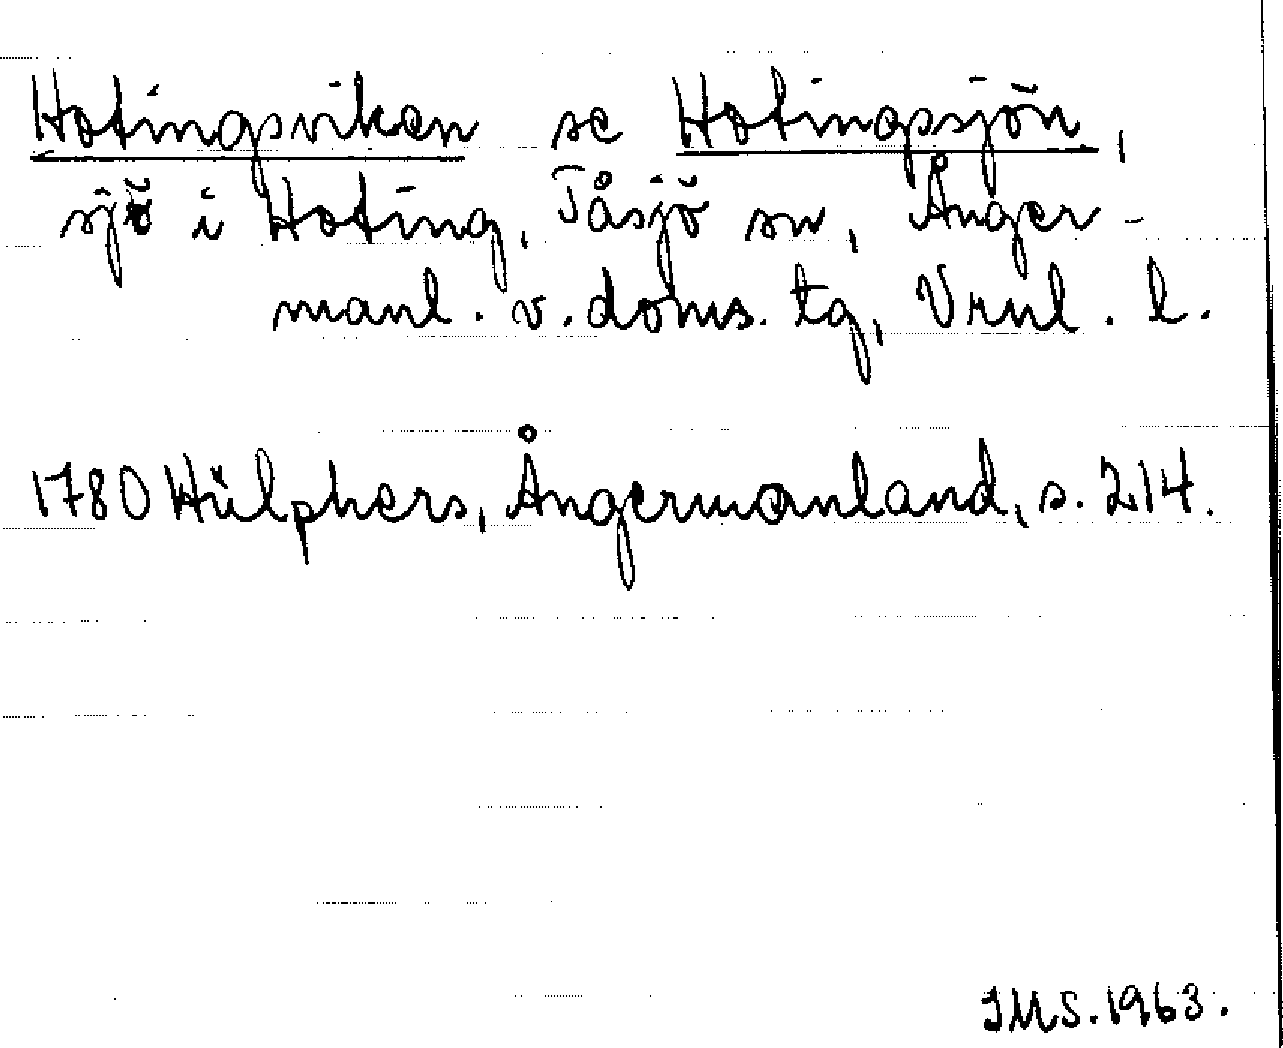 Hotingsviken se Hotingsjön,
sjö i Hoting, Tåsjö sn, Ånger-
manl. v. doms. tg, Vrnl. l.
1780 Hülphers, Ångermanland, s. 214.
IMS. 1963.